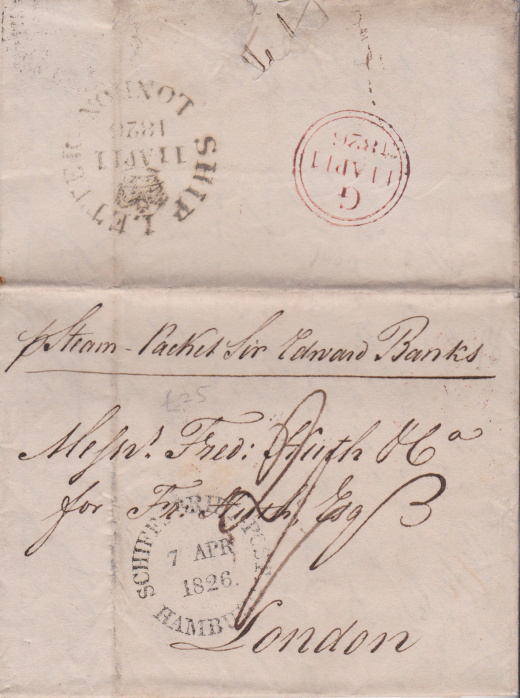 SHIP LETTER LONDON
11 AP 11
1826
G
11 AP 11
1826
p Steam-Packet Sir Edward Banks
£25
Messrs. Fred: Huth & Co
for Fr. Huth, Esq
SCHIFFSBRIEFPOST
7 APR
1826.
HAMBURG
London